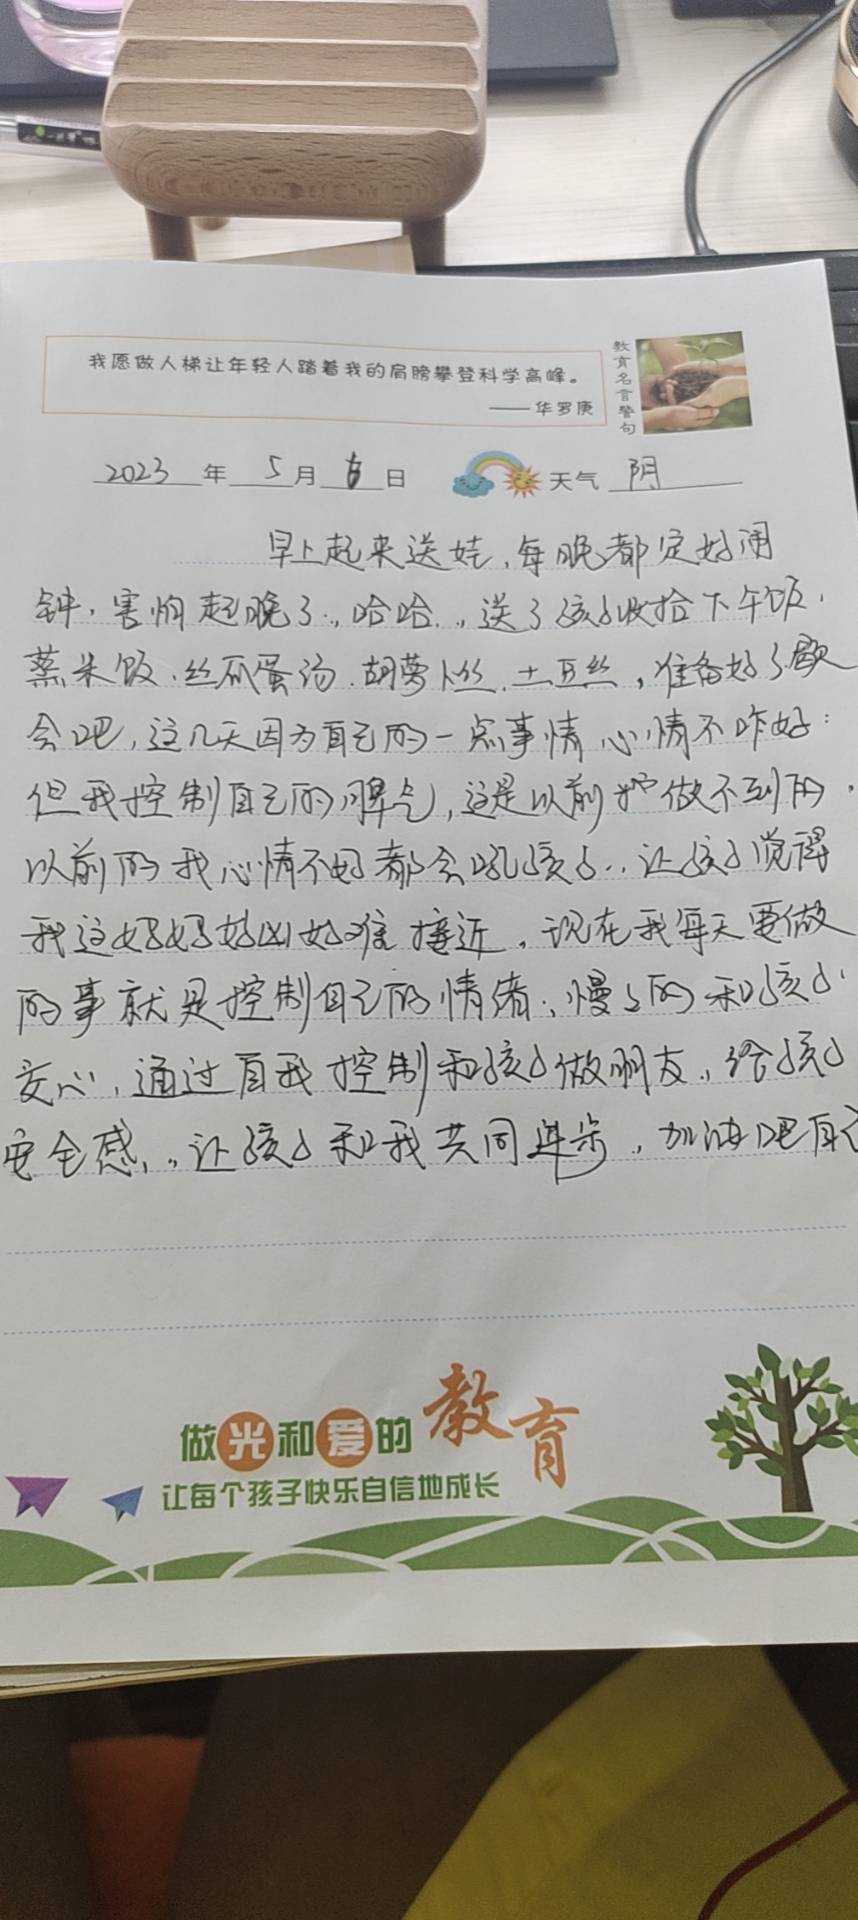 我愿做人梯让年轻人踏着我的肩膀攀登科学高峰。
——华罗庚
教育名言警句
2023年5月6日 天气 阴
早上起来送娃,每晚都定好闹
钟,害怕起晚了,哈哈,送了孩子收拾下午饭,
蒸米饭.丝瓜蛋汤.胡萝卜丝.土豆丝,准备好了歇
会吧,这几天因为自己的一点事情心情不咋好:
但我控制自己的脾气,这是以前我做不到的,
以前的我心情不好都会吼孩子,让孩子觉得
我这妈妈好凶好难接近,现在我每天要做
的事就是控制自己的情绪,慢慢的和孩子
交心,通过自我控制和孩子做朋友,给孩子
安全感,让孩子和我共同进步,加油吧自己
做光和爱的教育
让每个孩子快乐自信地成长